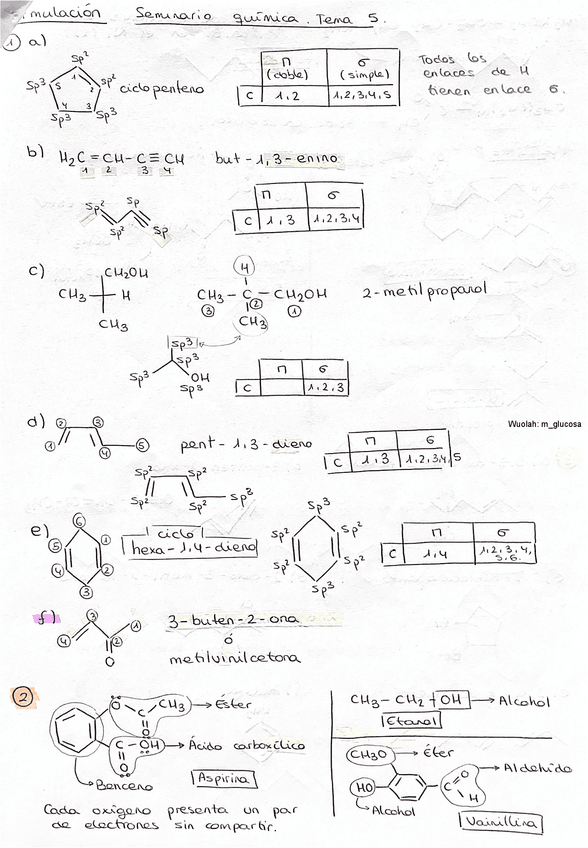 Simulación Seminario química. Tema 5.
1 a)
Sp²
Sp³ 5 1 Sp²
2
4 3
Sp³ Sp³
ciclopenteno
π (doble) σ (simple)
C 1,2 1,2,3,4,5
Todos los
enlaces de H
tienen enlace σ.
b) H₂C = CH - C ≡ CH but - 1,3 - enino
1 2 3 4
Sp² Sp
Sp² Sp
π σ
C 1,3 1,2,3,4
c) CH₂OH
CH₃ H
CH₃
H
CH₃ - C - CH₂OH
3 2 1
CH₃
2-metilpropanol
Sp³
Sp³
Sp³ OH
Sp³
π σ
C 1,2,3
d) 2 3
1 4 5
pent - 1,3 - dieno
π σ
C 1,3 1,2,3,4,5
Sp² Sp²
Sp² Sp² Sp³
e) 6
5 1
4 2
3
ciclo
hexa - 1,4 - dieno
Sp³
Sp² Sp²
Sp² Sp²
Sp³
π σ
C 1,4 1,2,3,4,
5,6.
f) 3 1
4 2
O
3-buten-2-ona
ó
metilvinilcetona
2
O C CH₃ → Éster
O
C - OH → Ácido carboxílico
O
Benceno
Aspirina
Cada oxígeno presenta un par
de electrones sin compartir.
CH₃ - CH₂ + OH → Alcohol
Etanol
CH₃O → Éter
HO C O → Aldehido
H
Alcohol
Vainillina
Wuolah: m_glucosa